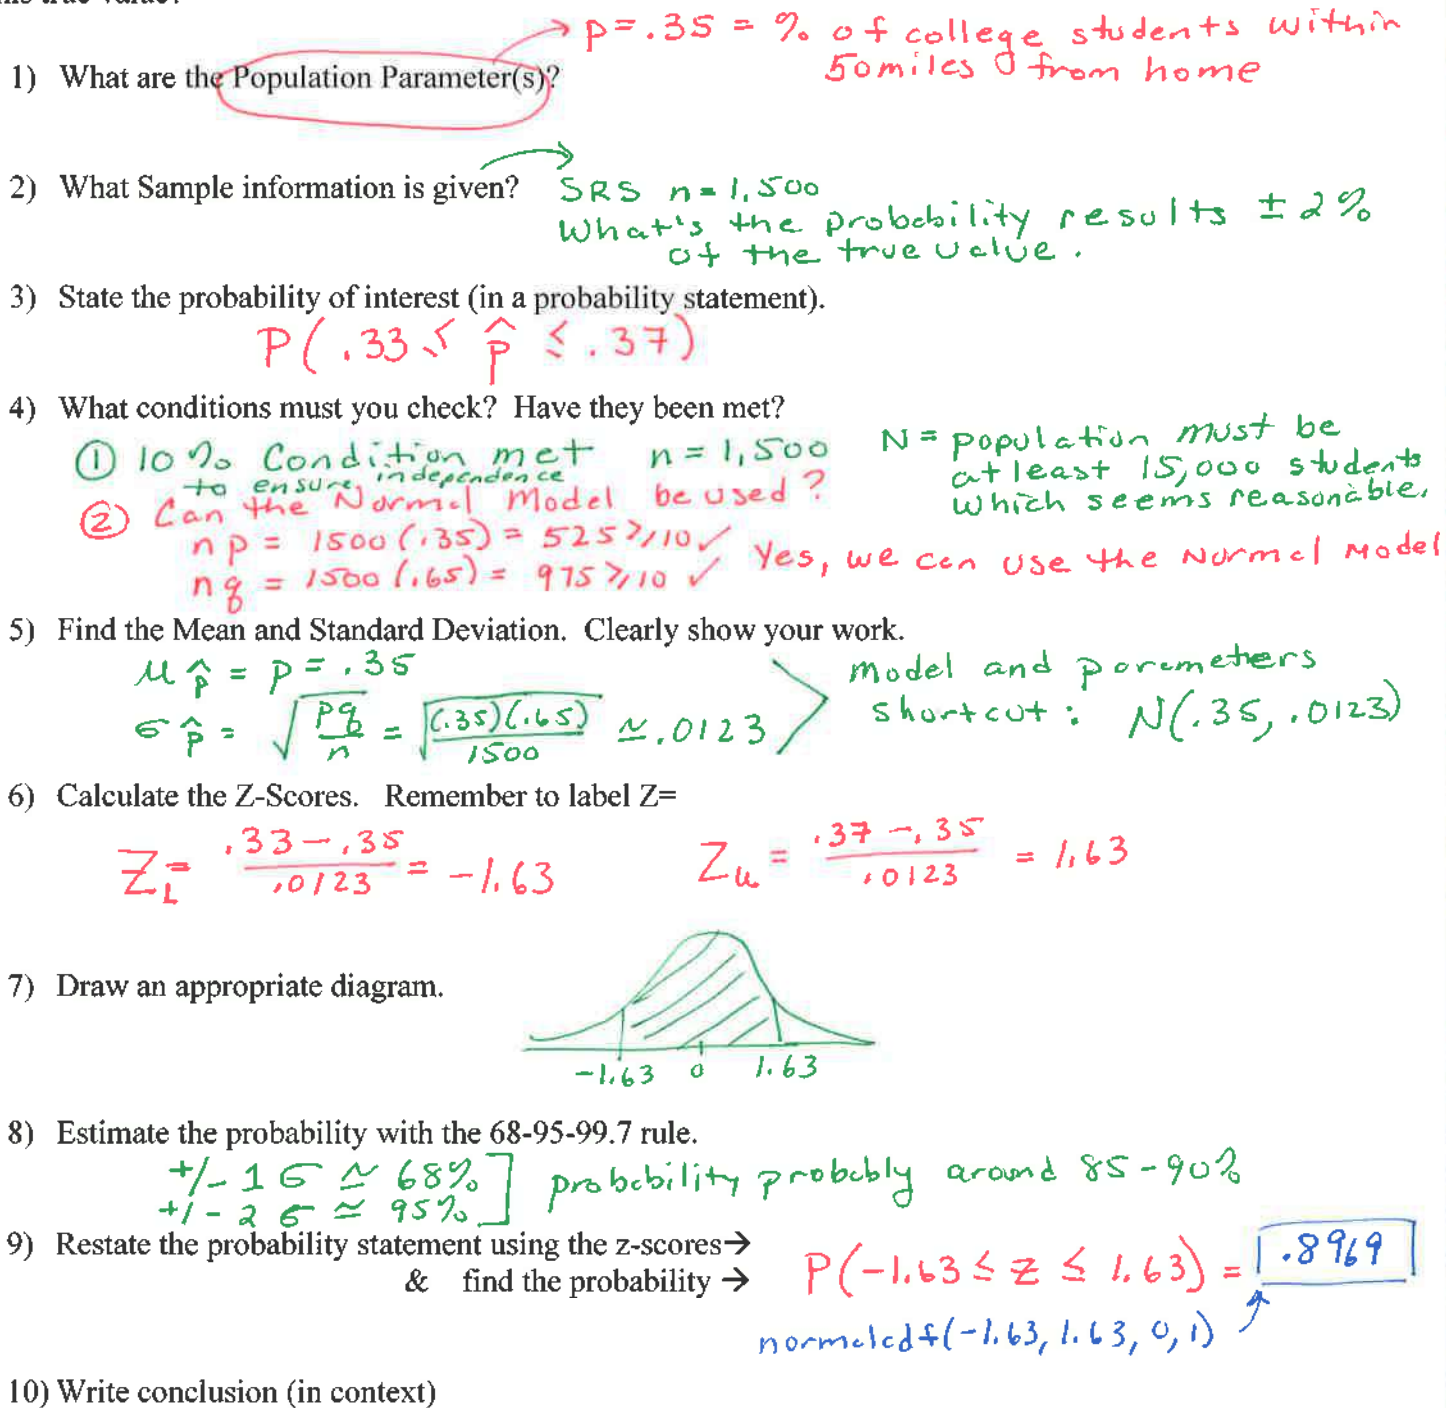 1) What are the Population Parameter(s)?
p = .35 = % of college students within
50 miles from home
2) What Sample information is given?
SRS n = 1,500
What's the probability results ± 2%
of the true value.
3) State the probability of interest (in a probability statement).
P( .33 ≤ p̂ ≤ .37)
4) What conditions must you check? Have they been met?
① 10% Condition met n = 1,500
to ensure independence
N = population must be
at least 15,000 students
which seems reasonable.
② Can the Normal Model be used?
np = 1500 (.35) = 525 ≥ 10 ✓
nq = 1500 (.65) = 975 ≥ 10 ✓
Yes, we can use the Normal Model
5) Find the Mean and Standard Deviation. Clearly show your work.
μp̂ = p = .35
σp̂ = √(pq/n) = √((.35)(.65)/1500) ≃ .0123
Model and parameters
shortcut: N(.35, .0123)
6) Calculate the Z-Scores. Remember to label Z=
ZL = (.33 - .35)/.0123 = -1.63
Zu = (.37 - .35)/.0123 = 1.63
7) Draw an appropriate diagram.
-1.63 0 1.63
8) Estimate the probability with the 68-95-99.7 rule.
+/- 1 σ ≃ 68%
+/- 2 σ ≃ 95%
probability probably around 85-90%
9) Restate the probability statement using the z-scores→
& find the probability →
P(-1.63 ≤ z ≤ 1.63) = .8969
normalcdf(-1.63, 1.63, 0, 1)
10) Write conclusion (in context)